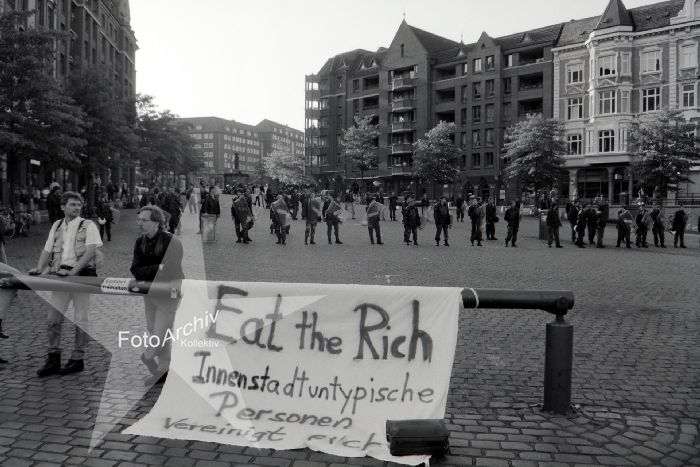 Einfahrt
freihalten
FotoArchiv
Kollektiv
Eat the Rich
Innenstadtuntypische
Personen
vereinigt euch